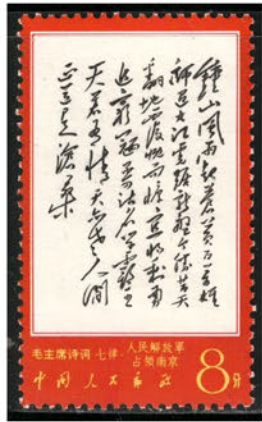 鐘山風雨起蒼黄百万雄
師過大江虎踞龍盤今勝昔天
翻地覆慨而慷宜將剩勇
追窮寇不可沽名學霸王
天若有情天亦老人間
正道是滄桑
毛主席诗词·七律·人民解放軍
占领南京
中国人民邮政 8分